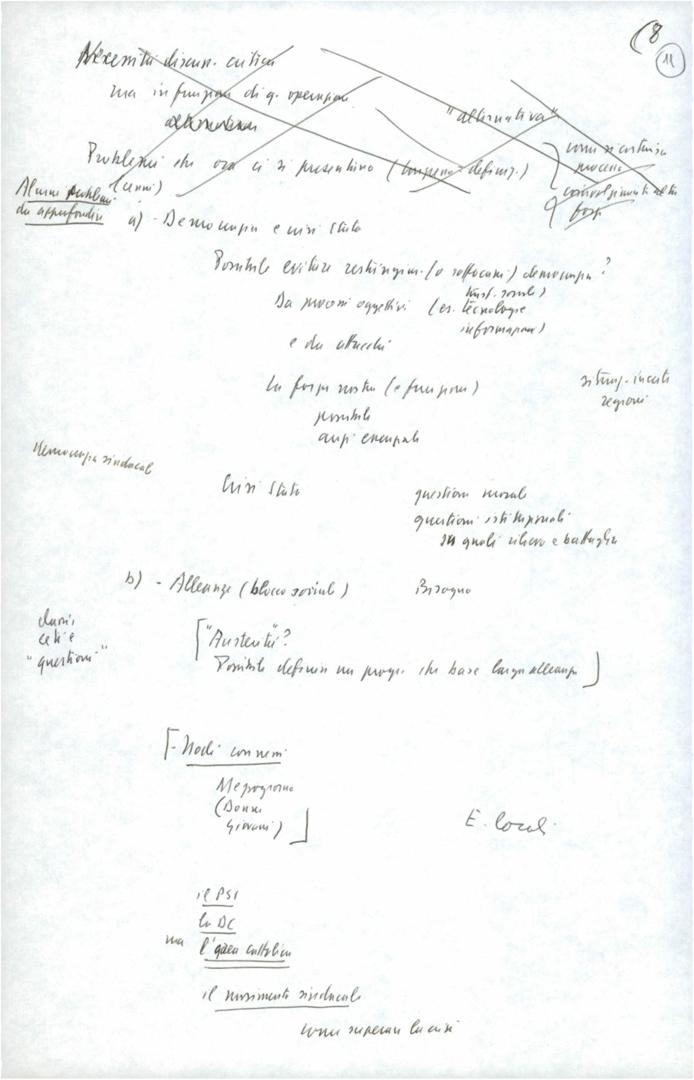 8
11
Necessità discuss. critica
ma in funzione di q. operazione
alternativa
"alternativa"
Problemi che ora ci si presentano (compreso defin.)
come si costruisce
processo
(cenni)
coinvolgimento altre
forze
Alcuni problemi
da approfondire
a) - Democrazia e crisi Stato
Possibile evitare restringim. (o soffocam.) democrazia?
Da processi oggettivi (es. tecnologie
trasf. sociali)
informazione)
e da attacchi
La forza nostra (e funzione)
situaz. incerte
regioni
possibile
anzi essenziale
democrazia sindacale
Crisi Stato
questione morale
questioni istituzionali
su quali rilievo e battaglia
b) - Alleanze (blocco sociale)
Bisogno
classi,
ceti e
"questioni"
["Austerità"?
Possibile definire un progr. che base larga alleanza]
[- Nodi connessi
Mezzogiorno
(Donne
Giovani)]
E. locali
il PSI
la DC
ma l'area cattolica
il movimento sindacale
come superare la crisi